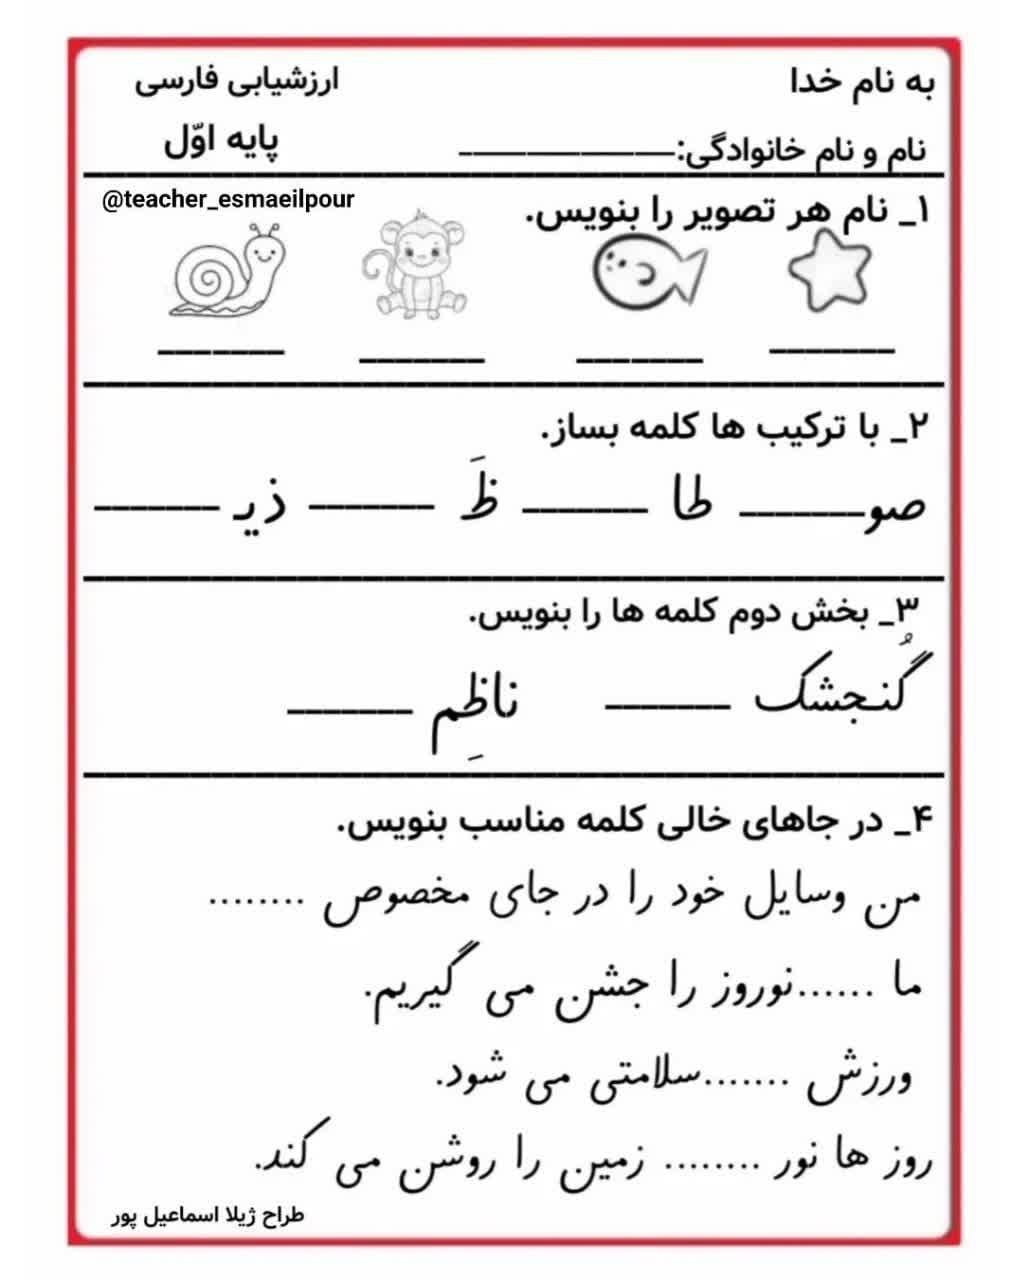 به نام خدا
ارزشیابی فارسی
نام و نام خانوادگی:ــــــــــــــــــ
پایه اوّل
@teacher_esmaeilpour
۱_ نام هر تصویر را بنویس.
۲_ با ترکیب ها کلمه بساز.
صو_______ طا _______ ظَ _______ ذیـ _______
۳_ بخش دوم کلمه ها را بنویس.
گُنجشک _______ ناظِم _______
۴_ در جاهای خالی کلمه مناسب بنویس.
من وسایل خود را در جای مخصوص ........
ما ......نوروز را جشن می گیریم.
ورزش .......سلامتی می شود.
روز ها نور ........ زمین را روشن می کند.
طراح ژیلا اسماعیل پور